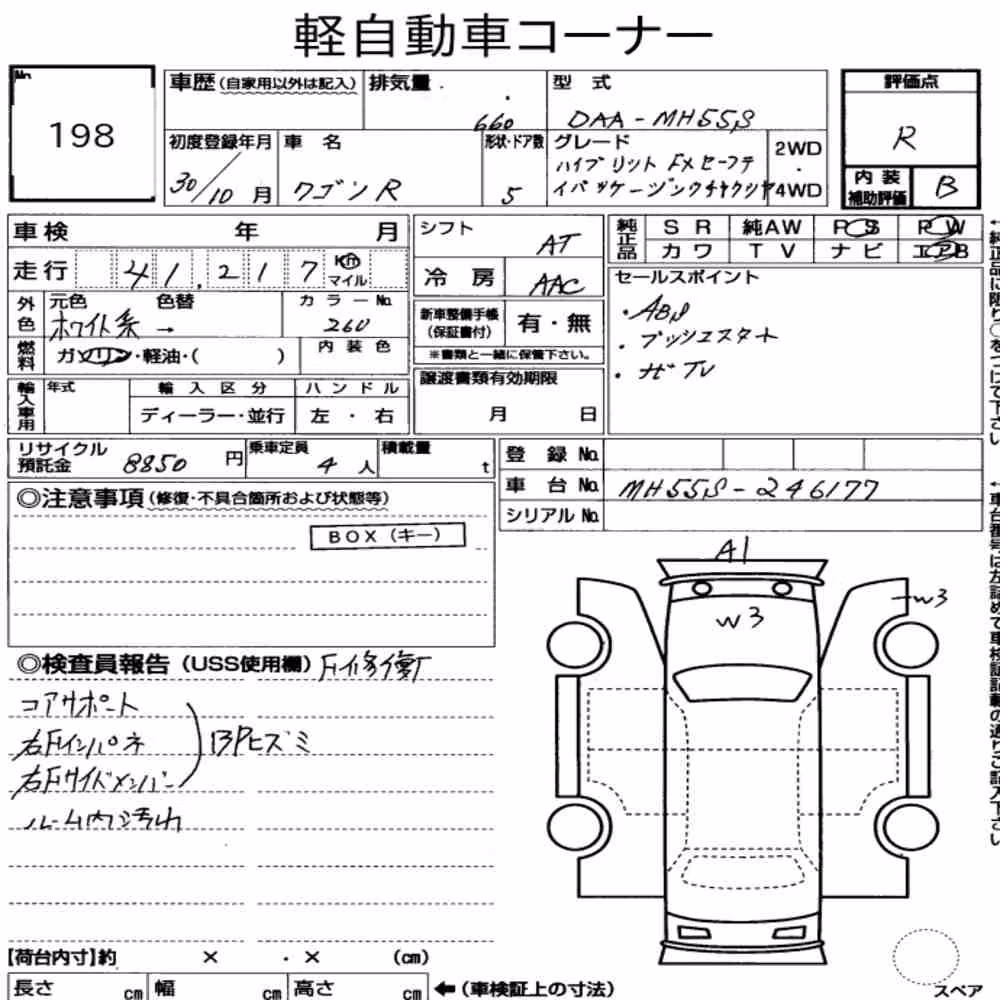 軽自動車コーナー
No.
198
車歴 (自家用以外は記入)
排気量
660
型式
DAA-MH55S
評価点
R
初度登録年月
30/10月
車名
ワゴンR
形状・ドア数
5
グレード
ハイブリット FXセーフテ
イパッケージ
2WD
・
4WD
内装
補助評価
B
車検 年 月
走行 41,217 Km マイル
シフト
AT
冷房
AAC
純正品
SR 純AW PS PW
カワ TV ナビ エアB
外色
元色
ホワイト系 →
色替
カラーNo.
260
燃料
ガソリン・軽油・( )
内装色
新車整備手帳
(保証書付)
有・無
※書類と一緒に保管下さい。
セールスポイント
・ABS
・プッシュスタート
・ナビTV
輸入車用
年式
輸入区分
ディーラー・並行
ハンドル
左・右
譲渡書類有効期限
月 日
リサイクル
預託金
8850 円
乗車定員
4人
積載量
t
登録No.
車台No. MH55S-246177
シリアルNo.
◎注意事項 (修復・不具合箇所および状態等)
BOX (キー)
◎検査員報告 (USS使用欄)
コアサポート
右Fインパネ
右Fサイドメンバー
BPヒズミ
ルーム内汚れ
A1
W3
W3
【荷台内寸】約 × ・ × (cm)
長さ cm 幅 cm 高さ cm ←(車検証上の寸法)
スペア
←純正品に限り○をつけて下さい
←車台番号は左詰めで車検証記載の通りご記入下さい